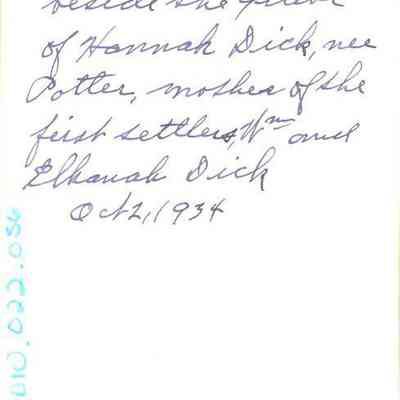 beside the grave
of Hannah Dick, nee
Potter, mother of the
first settlers, Wm and
Elkanah Dick
Oct 2, 1934
010.022.056